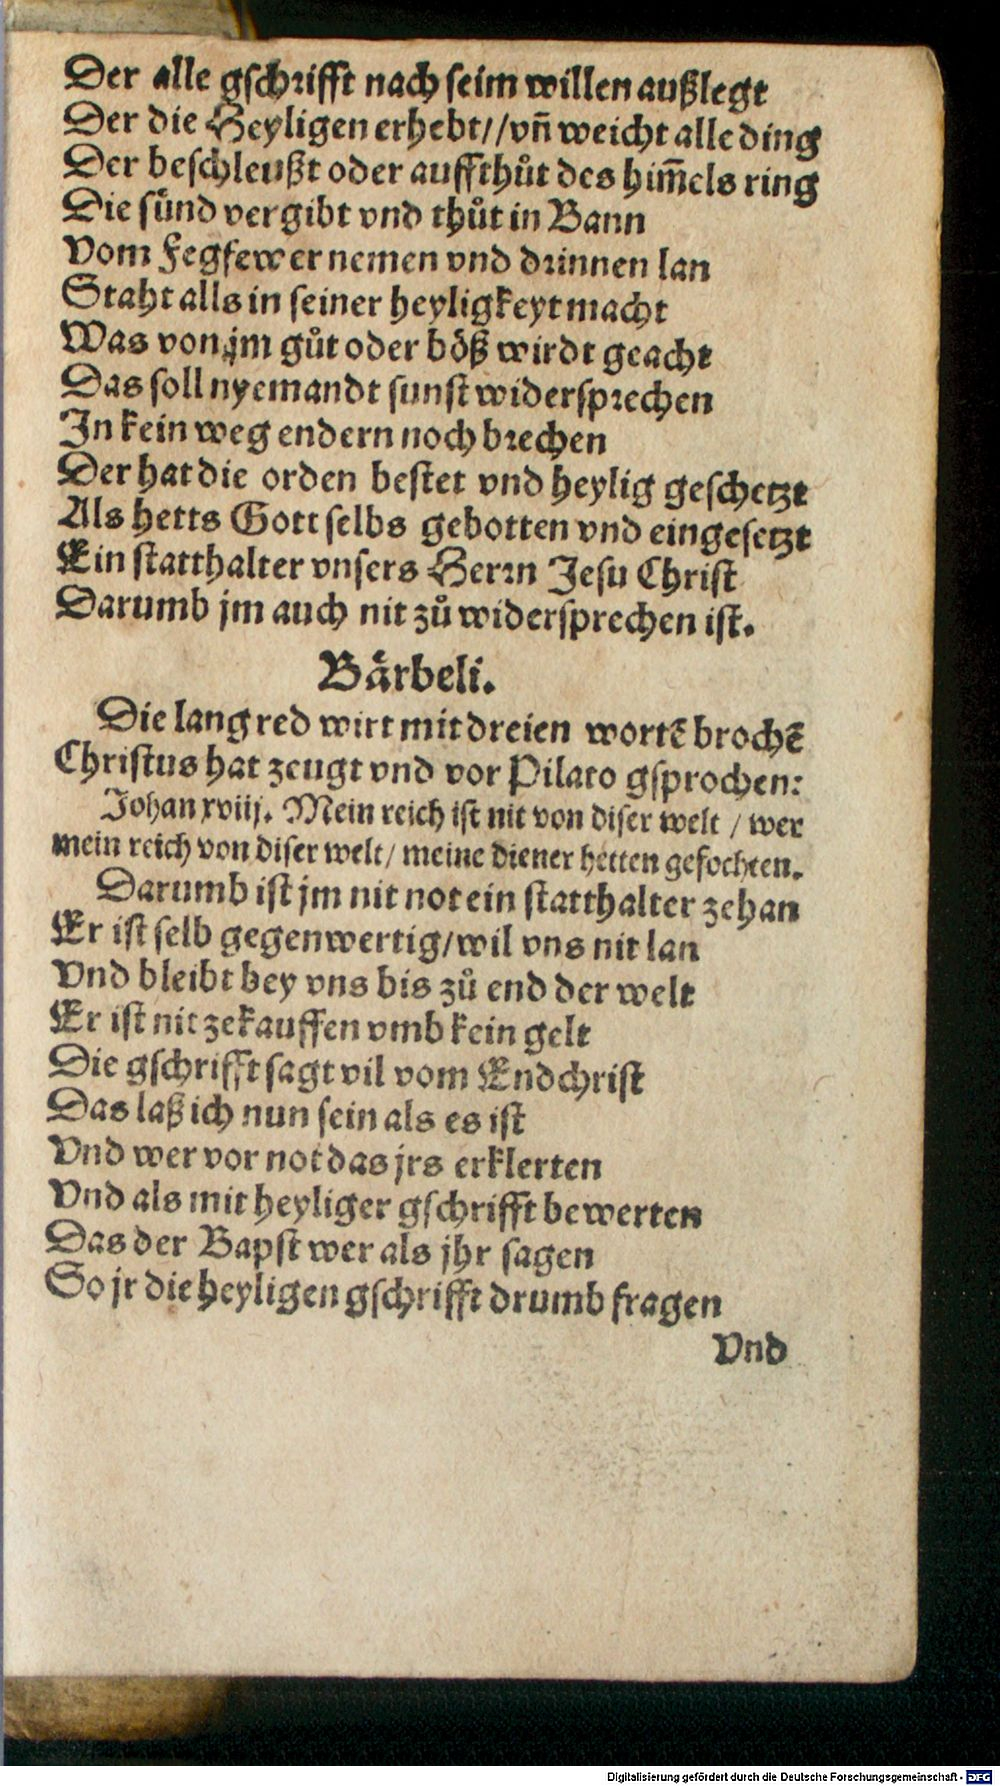 Der alle gschrifft nach seim willen außlegt
Der die Heyligen erhebt//vñ weicht alle ding
Der beschleußt oder auffthůt des him̄els ring
Die sünd vergibt vnd thůt in Bann
Vom Fegfewer nemen vnd drinnen lan
Staht alls in seiner heyligkeyt macht
Was von jm gůt oder böß wirdt geacht
Das soll nyemandt sunst widersprechen
In kein weg endern noch brechen
Der hat die orden bestet vnd heylig geschetzt
Als hetts Gott selbs gebotten vnd eingesetzt
Ein statthalter vnsers Herrn Jesu Christ
Darumb jm auch nit zů widersprechen ist.
Bärbeli.
Die lang red wirt mit dreien wortē brochē
Christus hat zeugt vnd vor Pilato gsprochen:
Johan xviij. Mein reich ist nit von diser welt / wer
mein reich von diser welt/ meine diener hetten gefochten.
Darumb ist jm nit not ein statthalter zehan
Er ist selb gegenwertig/wil vns nit lan
Vnd bleibt bey vns bis zů end der welt
Er ist nit zekauffen vmb kein gelt
Die gschrifft sagt vil vom Endchrist
Das laß ich nun sein als es ist
Vnd wer vor not das jrs erklerten
Vnd als mit heyliger gschrifft bewerten
Das der Bapst wer als jhr sagen
So jr die heyligen gschrifft drumb fragen
Vnd
Digitalisierung gefördert durch die Deutsche Forschungsgemeinschaft - DFG